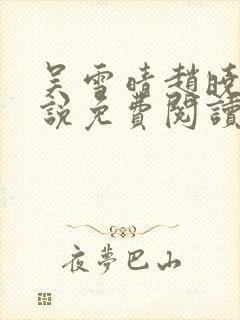 吴雪晴趙曉
說免費閱讀
夜夢巴山